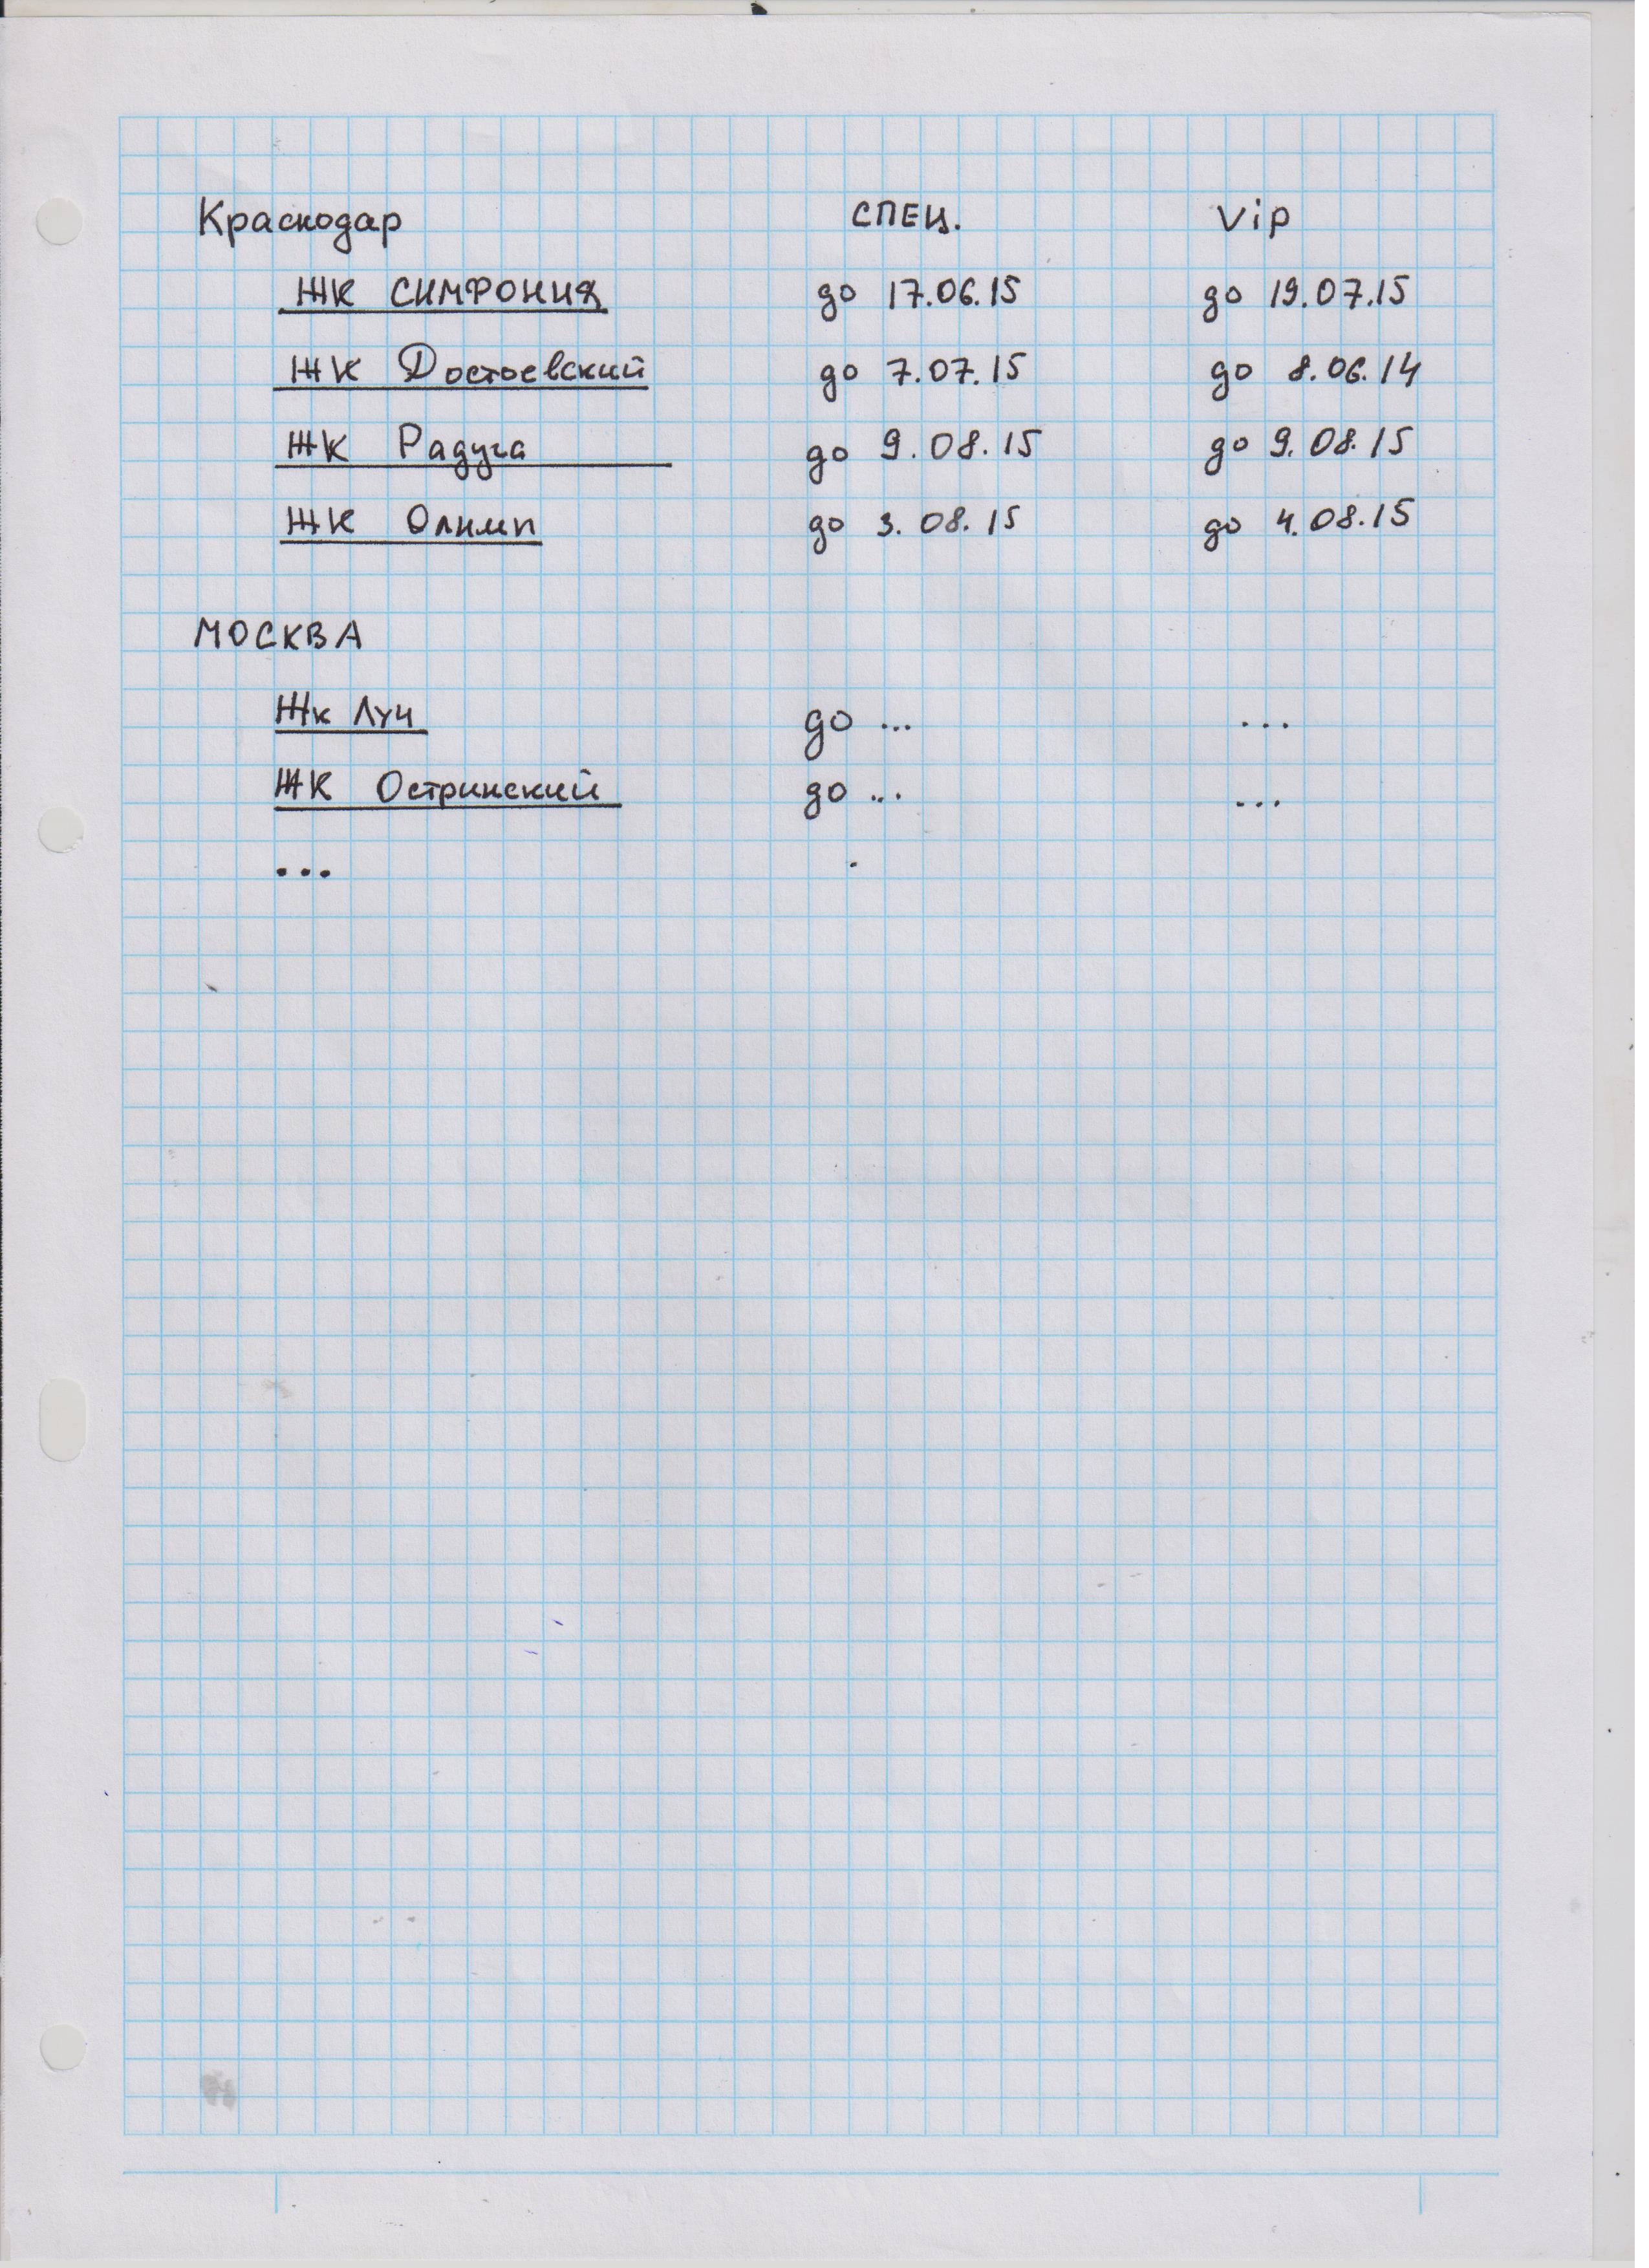 Краснодар СПЕЦ. Vip
ЖК СИМФОНИЯ до 17.06.15 до 19.07.15
ЖК Достоевский до 7.07.15 до 8.06.14
ЖК Радуга до 9.08.15 до 9.08.15
ЖК Олимп до 3.08.15 до 4.08.15
МОСКВА
Жк Луч до ... ...
ЖК Остринский до ... ...
... .